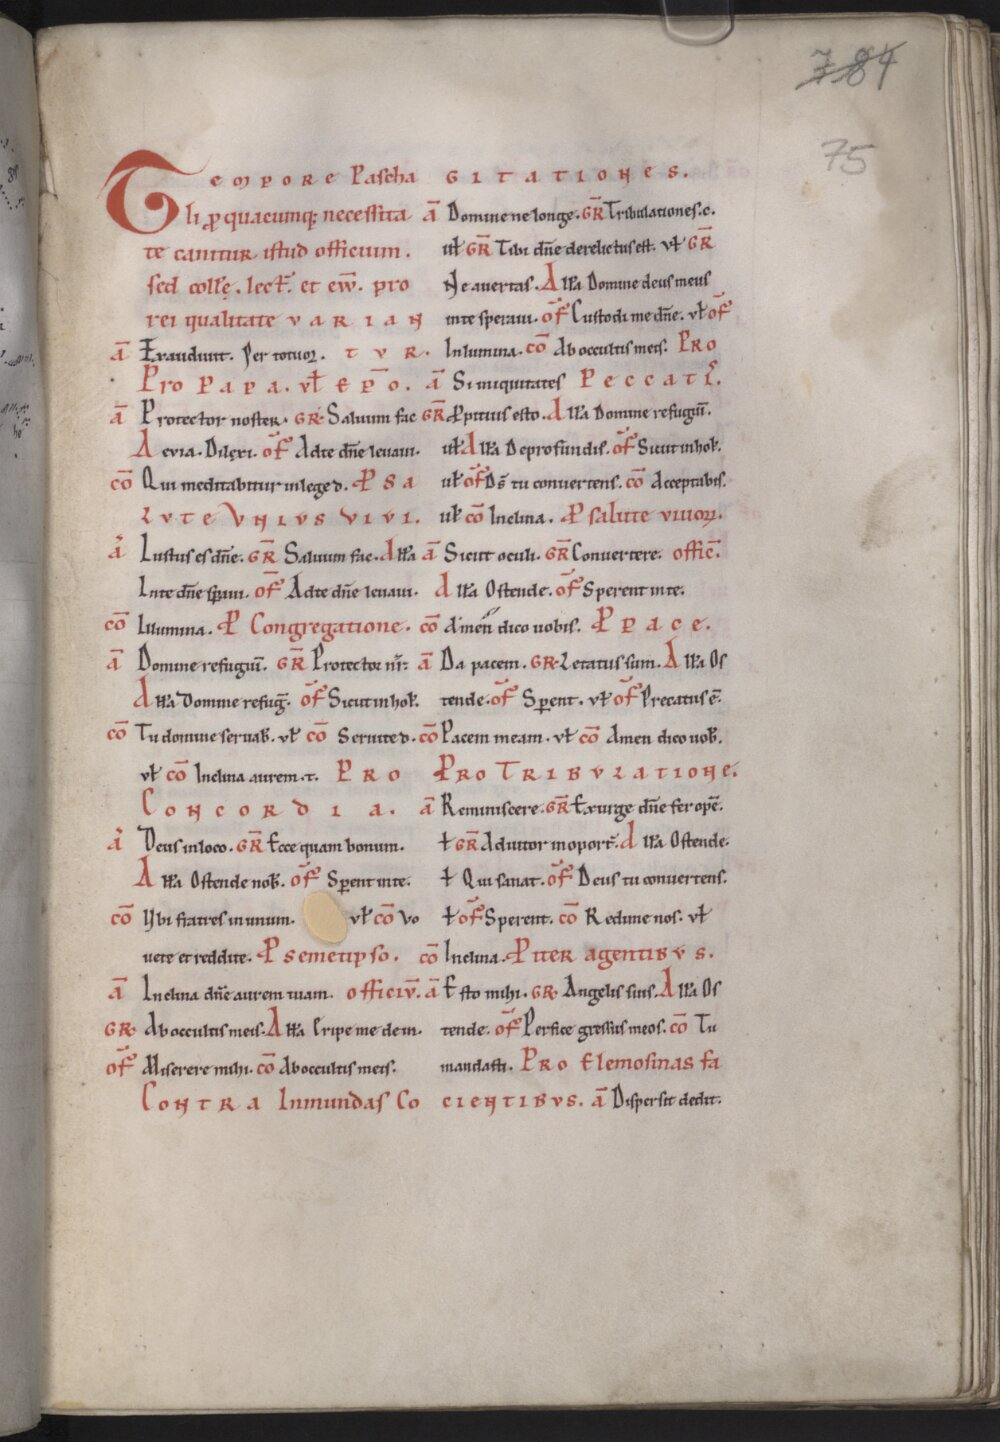 784
75
Tempore Pascha
li ꝓ quacumq; necessita
te canitur istud officium.
sed coll̄e. lect̄. et ew̄. pro
rei qualitate varian
ā Exaudivit. Per totuꝝ. tur.
Pro Papa. ul̄ Ep̄o.
ā Protector noster. GR Saluum fac
Aevia. Dilexi. of̄ Adte dn̄e leuaui.
cō Qui meditabitur inlege d. P sa
lute unius vivi.
ā Iustus es dn̄e. GR̄ Saluum fac. All̄a
Inte dn̄e sp̄aui. of̄ Adte dn̄e leuaui.
cō Illumina. P Congregatione.
ā Domine refugiū. GR̄ Protector nr̄
All̄a Domine refuḡ. of̄ Sicut in hol.
cō Tu domine seruab. ul̄ cō Seruite d.
ul̄ cō Inclina aurem. t. Pro
Concordia.
ā Deus inloco. GR̄ Ecce quam bonum.
All̄a Ostende nob. of̄ Sperent inte.
cō Ubi fratres in unum. ul̄ cō Vo
uete et reddite. P semetipso.
ā Inclina dn̄e aurem tuam. officiū.
GR Ab occultis meis. All̄a Eripe me de in.
of̄ Miserere mihi. cō Ab occultis meis.
Contra Inmundas Co
gitationes.
ā Domine ne longe. GR̄ Tribulationes. c.
ul̄ GR̄ Tibi dn̄e derelictus est. ul̄ GR̄
Ne auertas. All̄a Domine deus meus
inte speraui. of̄ Custodi me dn̄e. ul̄ of̄
Inlumina. cō Ab occultis meis. Pro
ā Si iniquitates Peccatis.
GR̄ Ppitius esto. All̄a Domine refugiū.
ul̄ All̄a Deprofundis. of̄ Sicut in hol.
ul̄ of̄ Ds̄ tu conuertens. cō Acceptabis.
ul̄ cō Inclina. P salute uiuoꝝ.
ā Sicut oculi. GR̄ Conuertere. offic̄.
All̄a Ostende. of̄ Sperent inte.
cō Amen dico uobis. P pace.
ā Da pacem. GR Letatus sum. All̄a Os
tende. of̄ Sperent. ul̄ of̄ Precatus ē.
cō Pacem meam. ul̄ cō Amen dico uob.
Pro Tribulatione.
ā Reminiscere. GR̄ Exurge dn̄e fer opē.
ł GR̄ Adiutor in oport̄. All̄a Ostende.
ł Qui sanat. of̄ Deus tu conuertens.
ł of̄ Sperent. cō Redime nos. ul̄
cō Inclina. P iter agentibus.
ā Esto mihi. GR Angelis suis. All̄a Os
tende. of̄ Perfice gressus meos. cō Tu
mandasti. Pro Elemosinas fa
cientibus. ā Dispersit dedit.